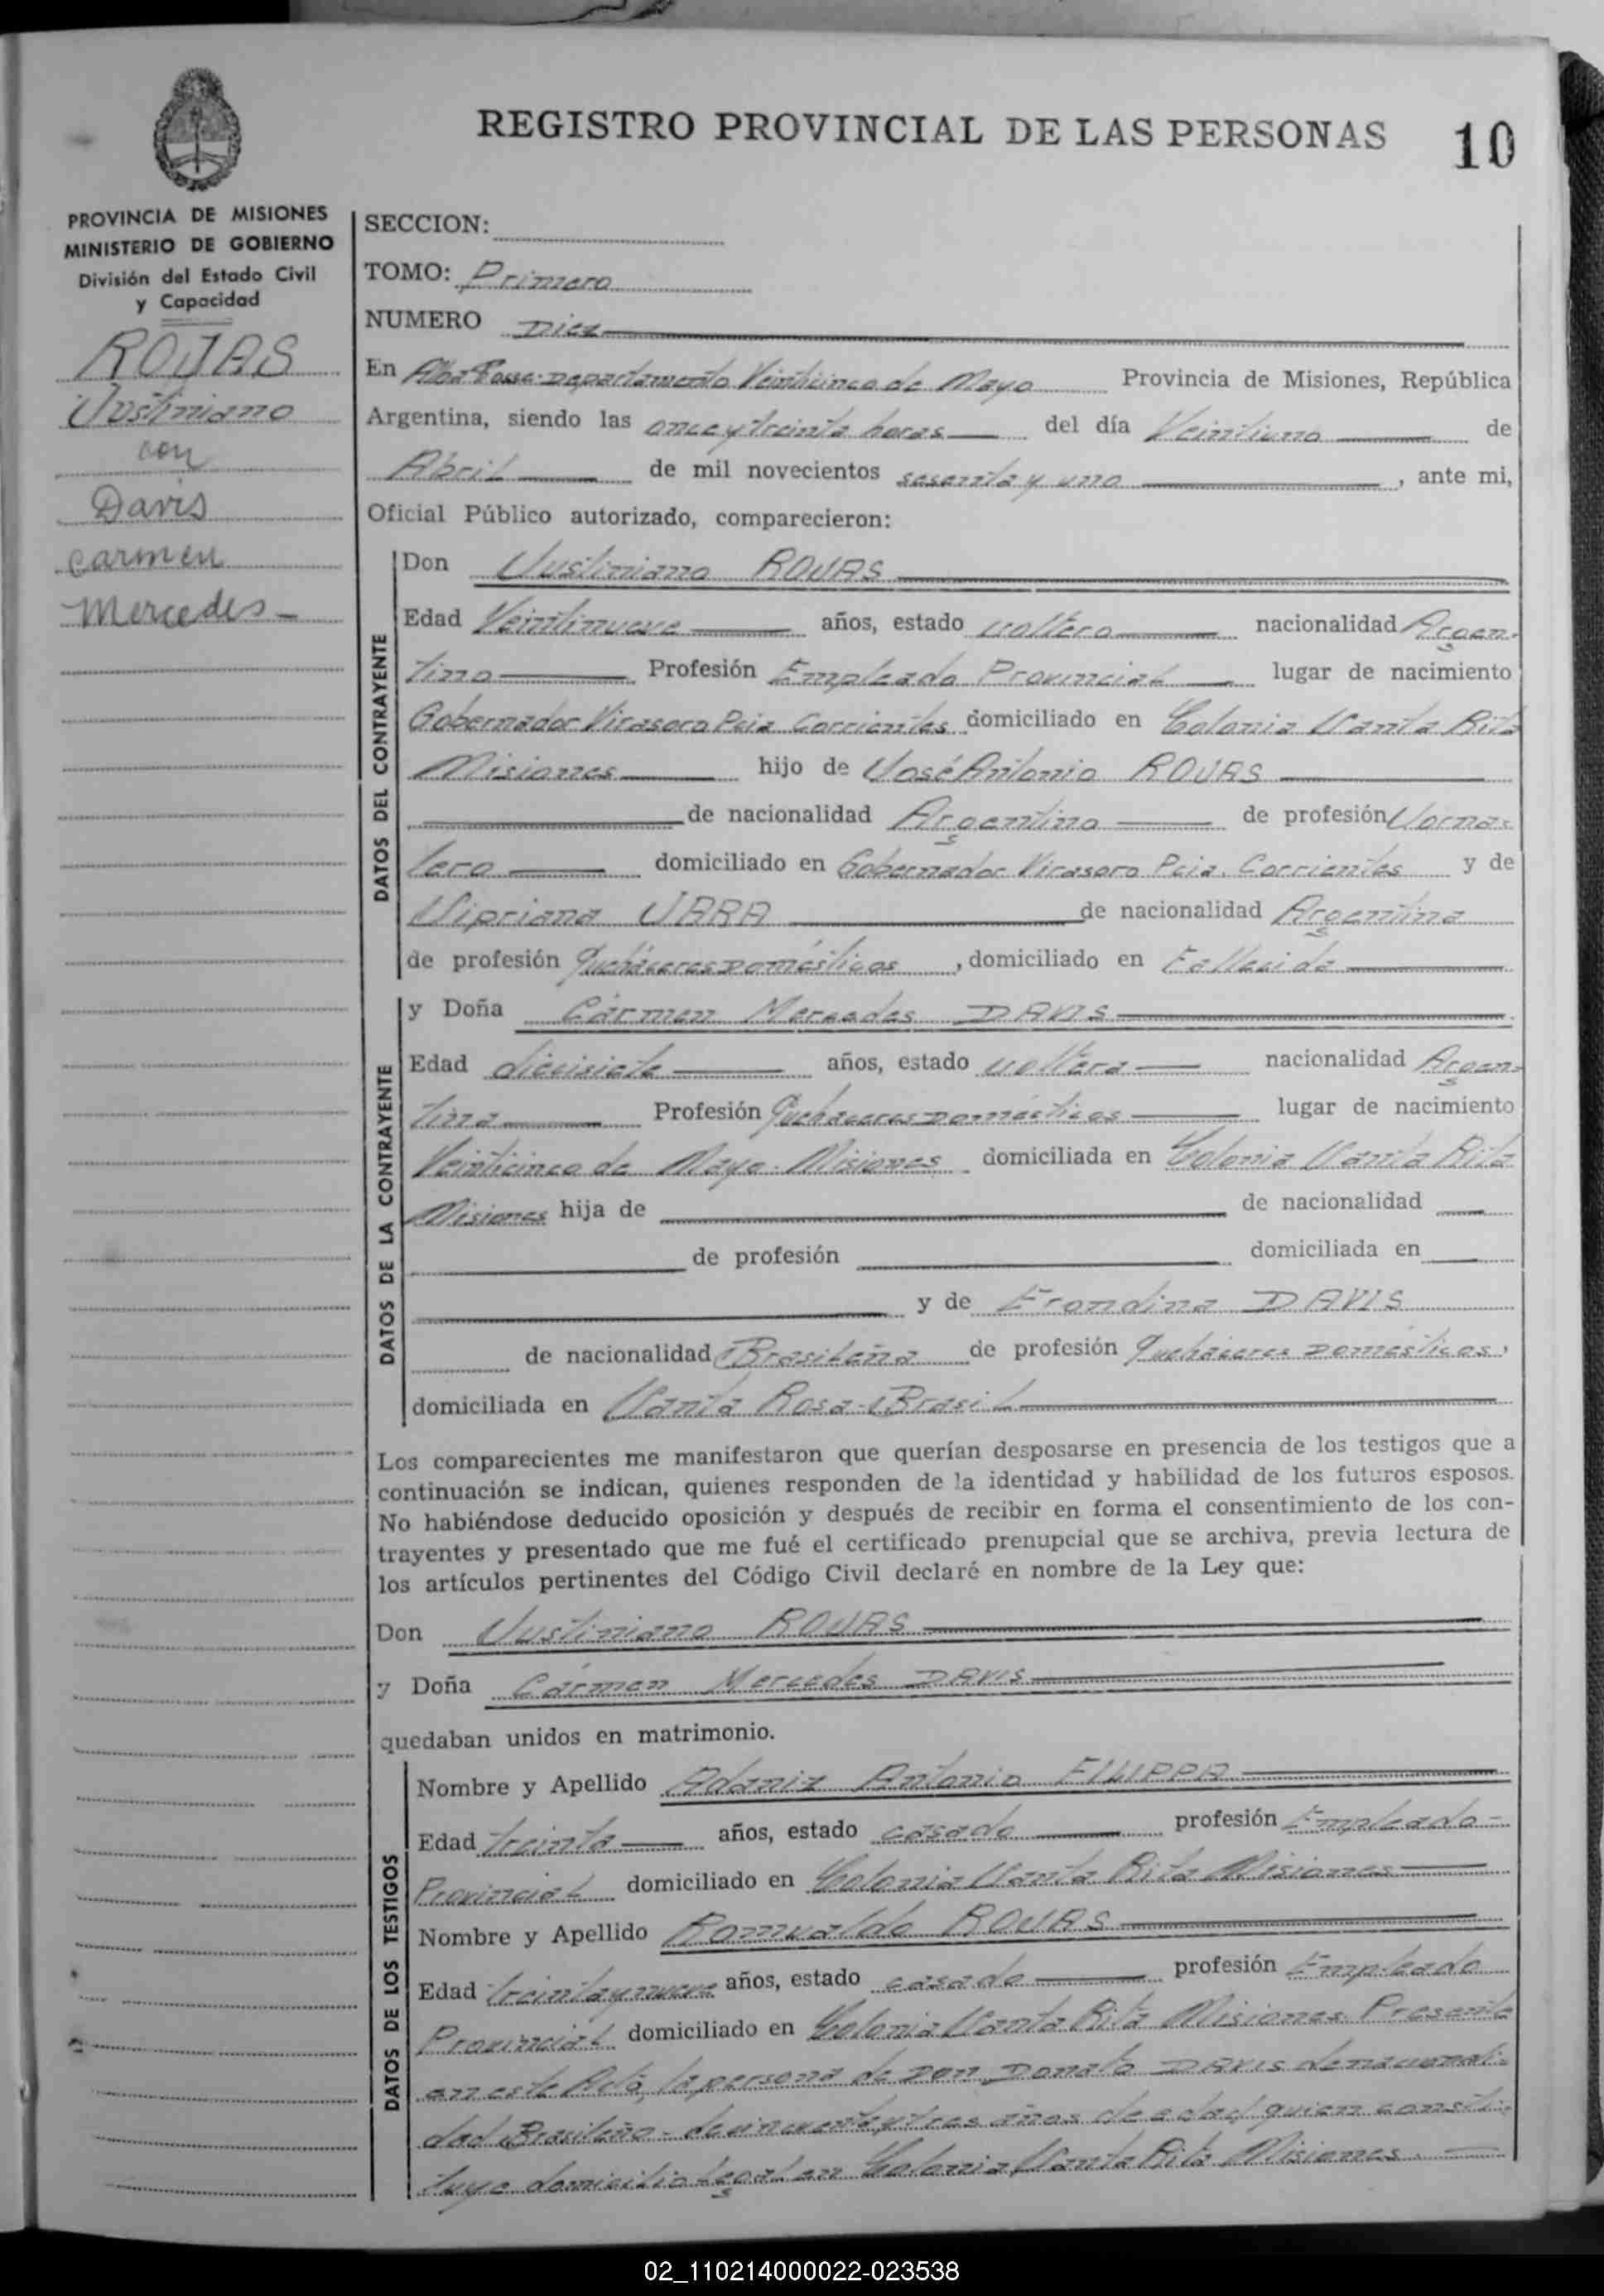 REGISTRO PROVINCIAL DE LAS PERSONAS 10
PROVINCIA DE MISIONES
MINISTERIO DE GOBIERNO
División del Estado Civil
y Capacidad
ROJAS
Justiniano
con
Davis
Carmen
Mercedes
SECCION:
TOMO: Primero
NUMERO Diez
En Alba Posse-Departamento Veinticinco de Mayo Provincia de Misiones, República
Argentina, siendo las once y treinta horas del día Veintiuno de
Abril de mil novecientos sesenta y uno, ante mi,
Oficial Público autorizado, comparecieron:
DATOS DEL CONTRAYENTE
Don Justiniano ROJAS
Edad Veintinueve años, estado soltero nacionalidad Argen-
tino Profesión Empleado Provincial lugar de nacimiento
Gobernador Virasoro Pcia. Corrientes domiciliado en Colonia Santa Rita
Misiones hijo de José Antonio ROJAS
de nacionalidad Argentino de profesión Jorna-
lero domiciliado en Gobernador Virasoro Pcia. Corrientes y de
Sipriana JARA de nacionalidad Argentina
de profesión Quehaceres Domésticos, domiciliado en Fallecida
DATOS DE LA CONTRAYENTE
y Doña Cármen Mercedes DAVIS
Edad diecisiete años, estado soltera nacionalidad Argen-
tina Profesión Quehaceres Domésticos lugar de nacimiento
Veinticinco de Mayo-Misiones domiciliada en Colonia Santa Rita
Misiones hija de de nacionalidad
de profesión domiciliada en
y de Erondina DAVIS
de nacionalidad Brasileña de profesión Quehaceres Domésticos,
domiciliada en Santa Rosa-Brasil
Los comparecientes me manifestaron que querían desposarse en presencia de los testigos que a
continuación se indican, quienes responden de la identidad y habilidad de los futuros esposos.
No habiéndose deducido oposición y después de recibir en forma el consentimiento de los con-
trayentes y presentado que me fué el certificado prenupcial que se archiva, previa lectura de
los artículos pertinentes del Código Civil declaré en nombre de la Ley que:
Don Justiniano ROJAS
y Doña Cármen Mercedes DAVIS
quedaban unidos en matrimonio.
DATOS DE LOS TESTIGOS
Nombre y Apellido Adaniz Antonio FILIPPA
Edad treinta años, estado casado profesión Empleado-
Provincial domiciliado en Colonia Santa Rita Misiones
Nombre y Apellido Romualdo ROJAS
Edad treinta y nueve años, estado casado profesión Empleado
Provincial domiciliado en Colonia Santa Rita Misiones Presente
en este Acto, la persona de Don Donato DAVIS de nacionali-
dad Brasileño-de cincuenta y tres años de edad quien consti-
tuye domicilio legal en Colonia Santa Rita Misiones.
02_110214000022-023538